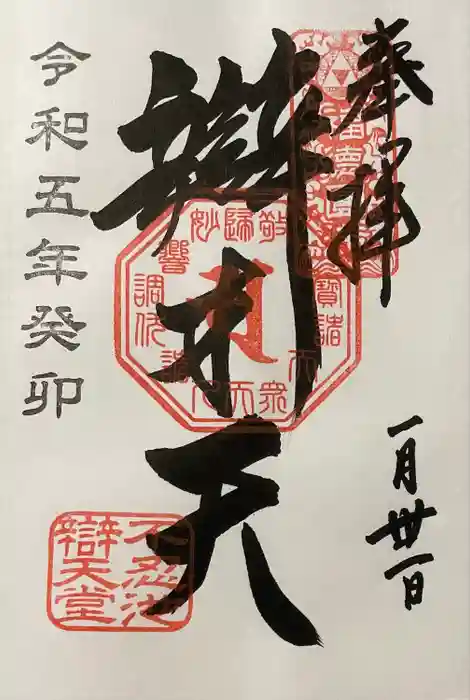 奉拝
一月卅一日
辯才天
令和五年癸卯
不忍池
辯天堂